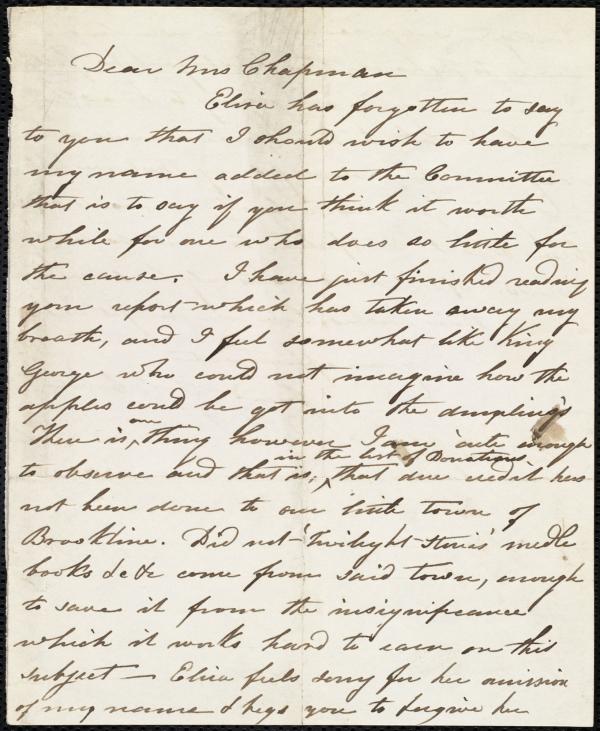 Dear Mrs Chapman
Eliza has forgotten to say
to you that I should wish to have
my name added to the Committee
that is to say if you think it worth
while for one who does so little for
the cause. I have just finished reading
your report which has taken away my
breath, and I feel somewhat like King
George who could not imagine how the
apples could be got into the dumplings
There is, one thing however I am 'cute enough
to observe and that is; in the list of Donations that due credit has
not been done to our little town of
Brookline. Did not 'Twilight Stories' needle
books &c &c come from said town, enough
to save it from the insignificance
which it works hard to earn on this
subject — Eliza feels sorry for her omission
of my name & begs you to forgive her